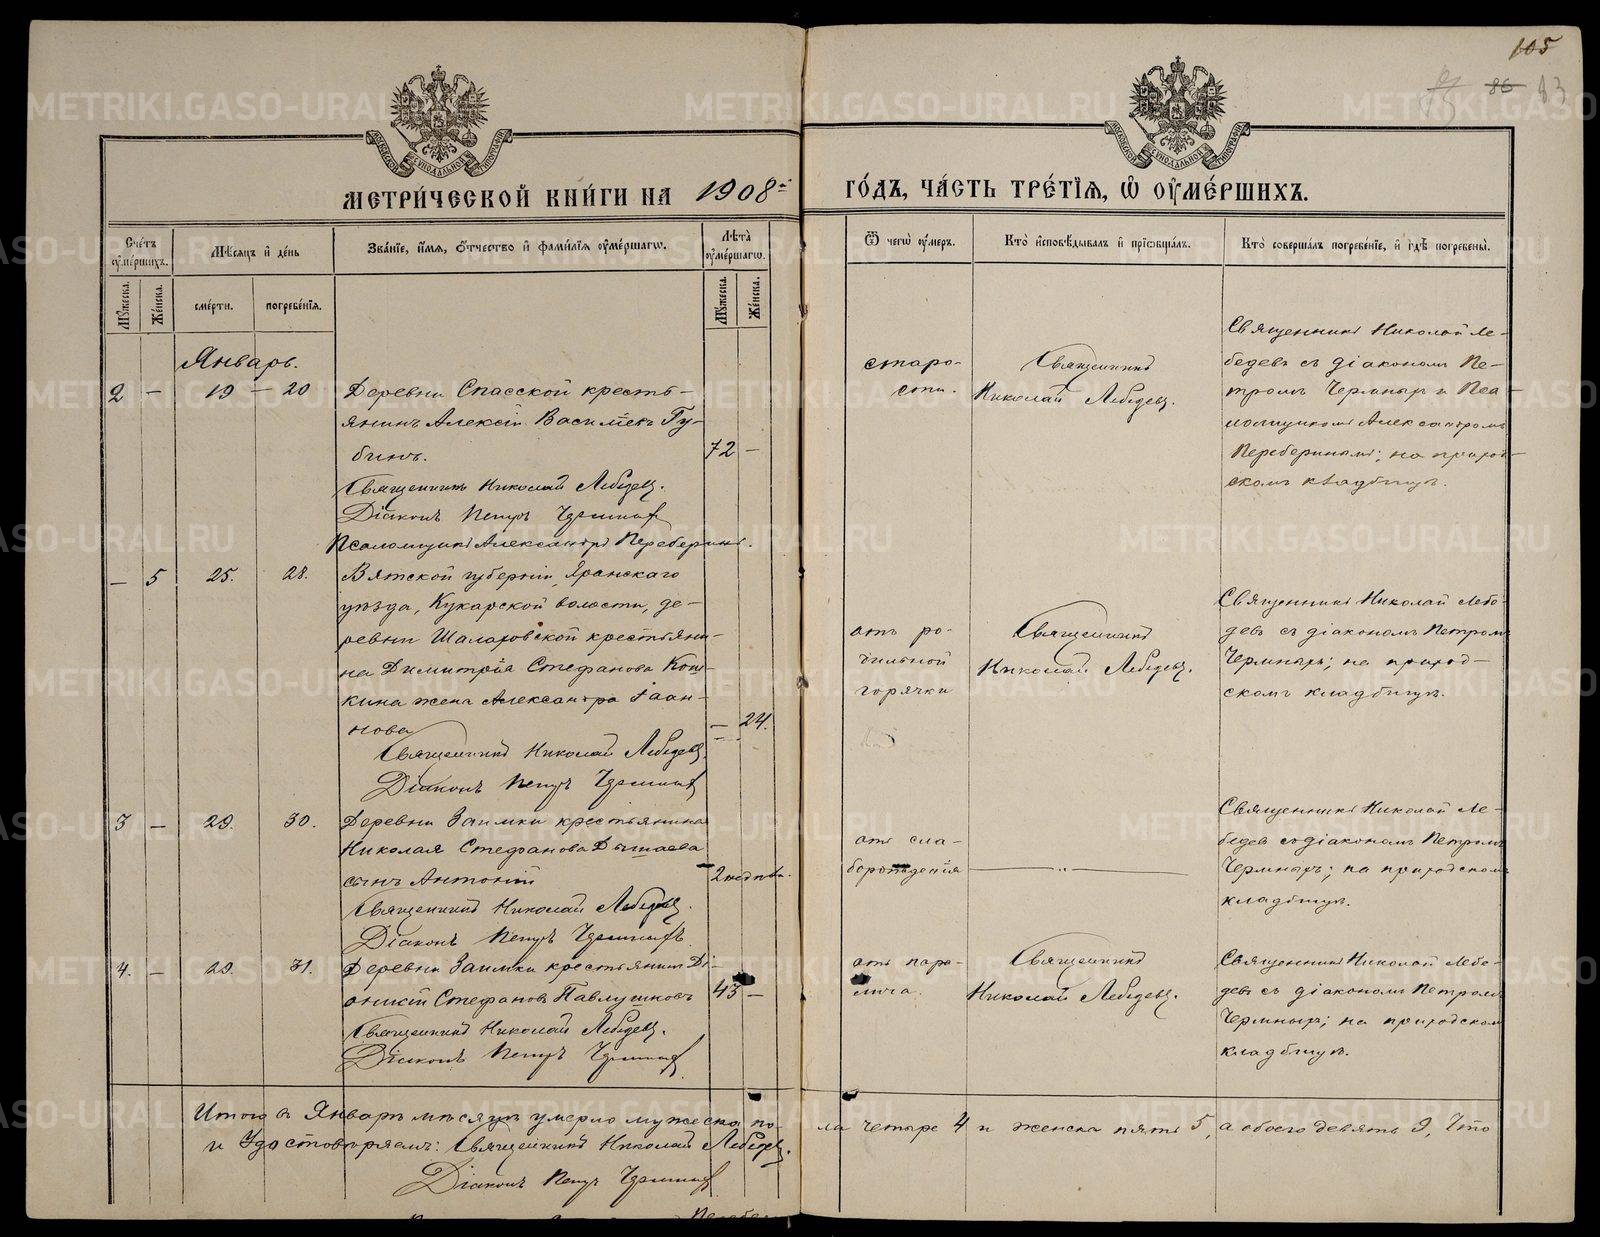 105
86
83
МЕТРИ́ЧЕСКОЙ КНИ́ГИ НА 1908-й
ГО́ДЪ, ЧА́СТЬ ТРЕ́ТІЯ, Ѡ ОУМЕ́РШИХЪ.
Сче́тъ оумершихъ.
Мѣсяцъ и день
Зва́ніе, и́мя, о́тчество и фами́лія оумершагѡ.
Лѣта̀ оумершагѡ.
Мужеска.
Же́нска.
сме́рти.
погребе́нія.
Мужеска.
Же́нска.
Ѿ чегѡ̀ оумеръ.
Кто̀ исповѣдывалъ и пріобща́лъ.
Кто̀ соверша́лъ погребе́ніе, и гдѣ погребены̀.
Январь.
2 — 19 — 20
Деревни Спасской кресть-
янинъ Алексій Василіевъ Гу-
бинъ.
72 —
Священникъ Николай Лебедевъ.
Діаконъ Петръ Чермныхъ
Псаломщикъ Александръ Переберинъ.
старо-
сти.
Священникъ
Николай Лебедевъ.
Священникъ Николай Ле-
бедевъ съ діакономъ Пе-
тромъ Чермныхъ и Пса-
ломщикомъ Александромъ
Переберинымъ; на приход-
скомъ кладбищѣ.
— 5 25. 28.
Вятской губерніи, Яранскаго
уѣзда, Кукарской волости, де-
ревни Шаларовской крестьяни-
на Димитрія Стефанова Кош-
кина жена Александра Іоан-
нова
— 24.
Священникъ Николай Лебедевъ.
Діаконъ Петръ Чермныхъ
отъ ро-
дильной
горячки
Священникъ
Николай Лебедевъ.
Священникъ Николай Лебе-
девъ съ діакономъ Петромъ
Чермныхъ; на приход-
скомъ кладбищѣ.
3 — 29. 30.
Деревни Заимки крестьянина
Николая Стефанова Дышаева
сынъ Антоній
2 недѣли.
Священникъ Николай Лебедевъ.
Діаконъ Петръ Чермныхъ
отъ сла-
борожденія
— „ —
Священникъ Николай Ле-
бедевъ съ діакономъ Петромъ
Чермныхъ; на приходскомъ
кладбищѣ.
4. — 29. 31.
Деревни Заимки крестьянинъ Ді-
онисій Стефановъ Павлушковъ
43 —
Священникъ Николай Лебедевъ.
Діаконъ Петръ Чермныхъ
отъ пара-
лича.
Священникъ
Николай Лебедевъ.
Священникъ Николай Лебе-
девъ съ діакономъ Петромъ
Чермныхъ; на приходскомъ
кладбищѣ.
Итого въ Январѣ мѣсяцѣ умерло мужеска по-
ла четыре 4 и женска пять 5, а обоего девять 9, Что
и удостовѣряемъ: Священникъ Николай Лебедевъ.
Діаконъ Петръ Чермныхъ
METRIKI.GASO-URAL.RU